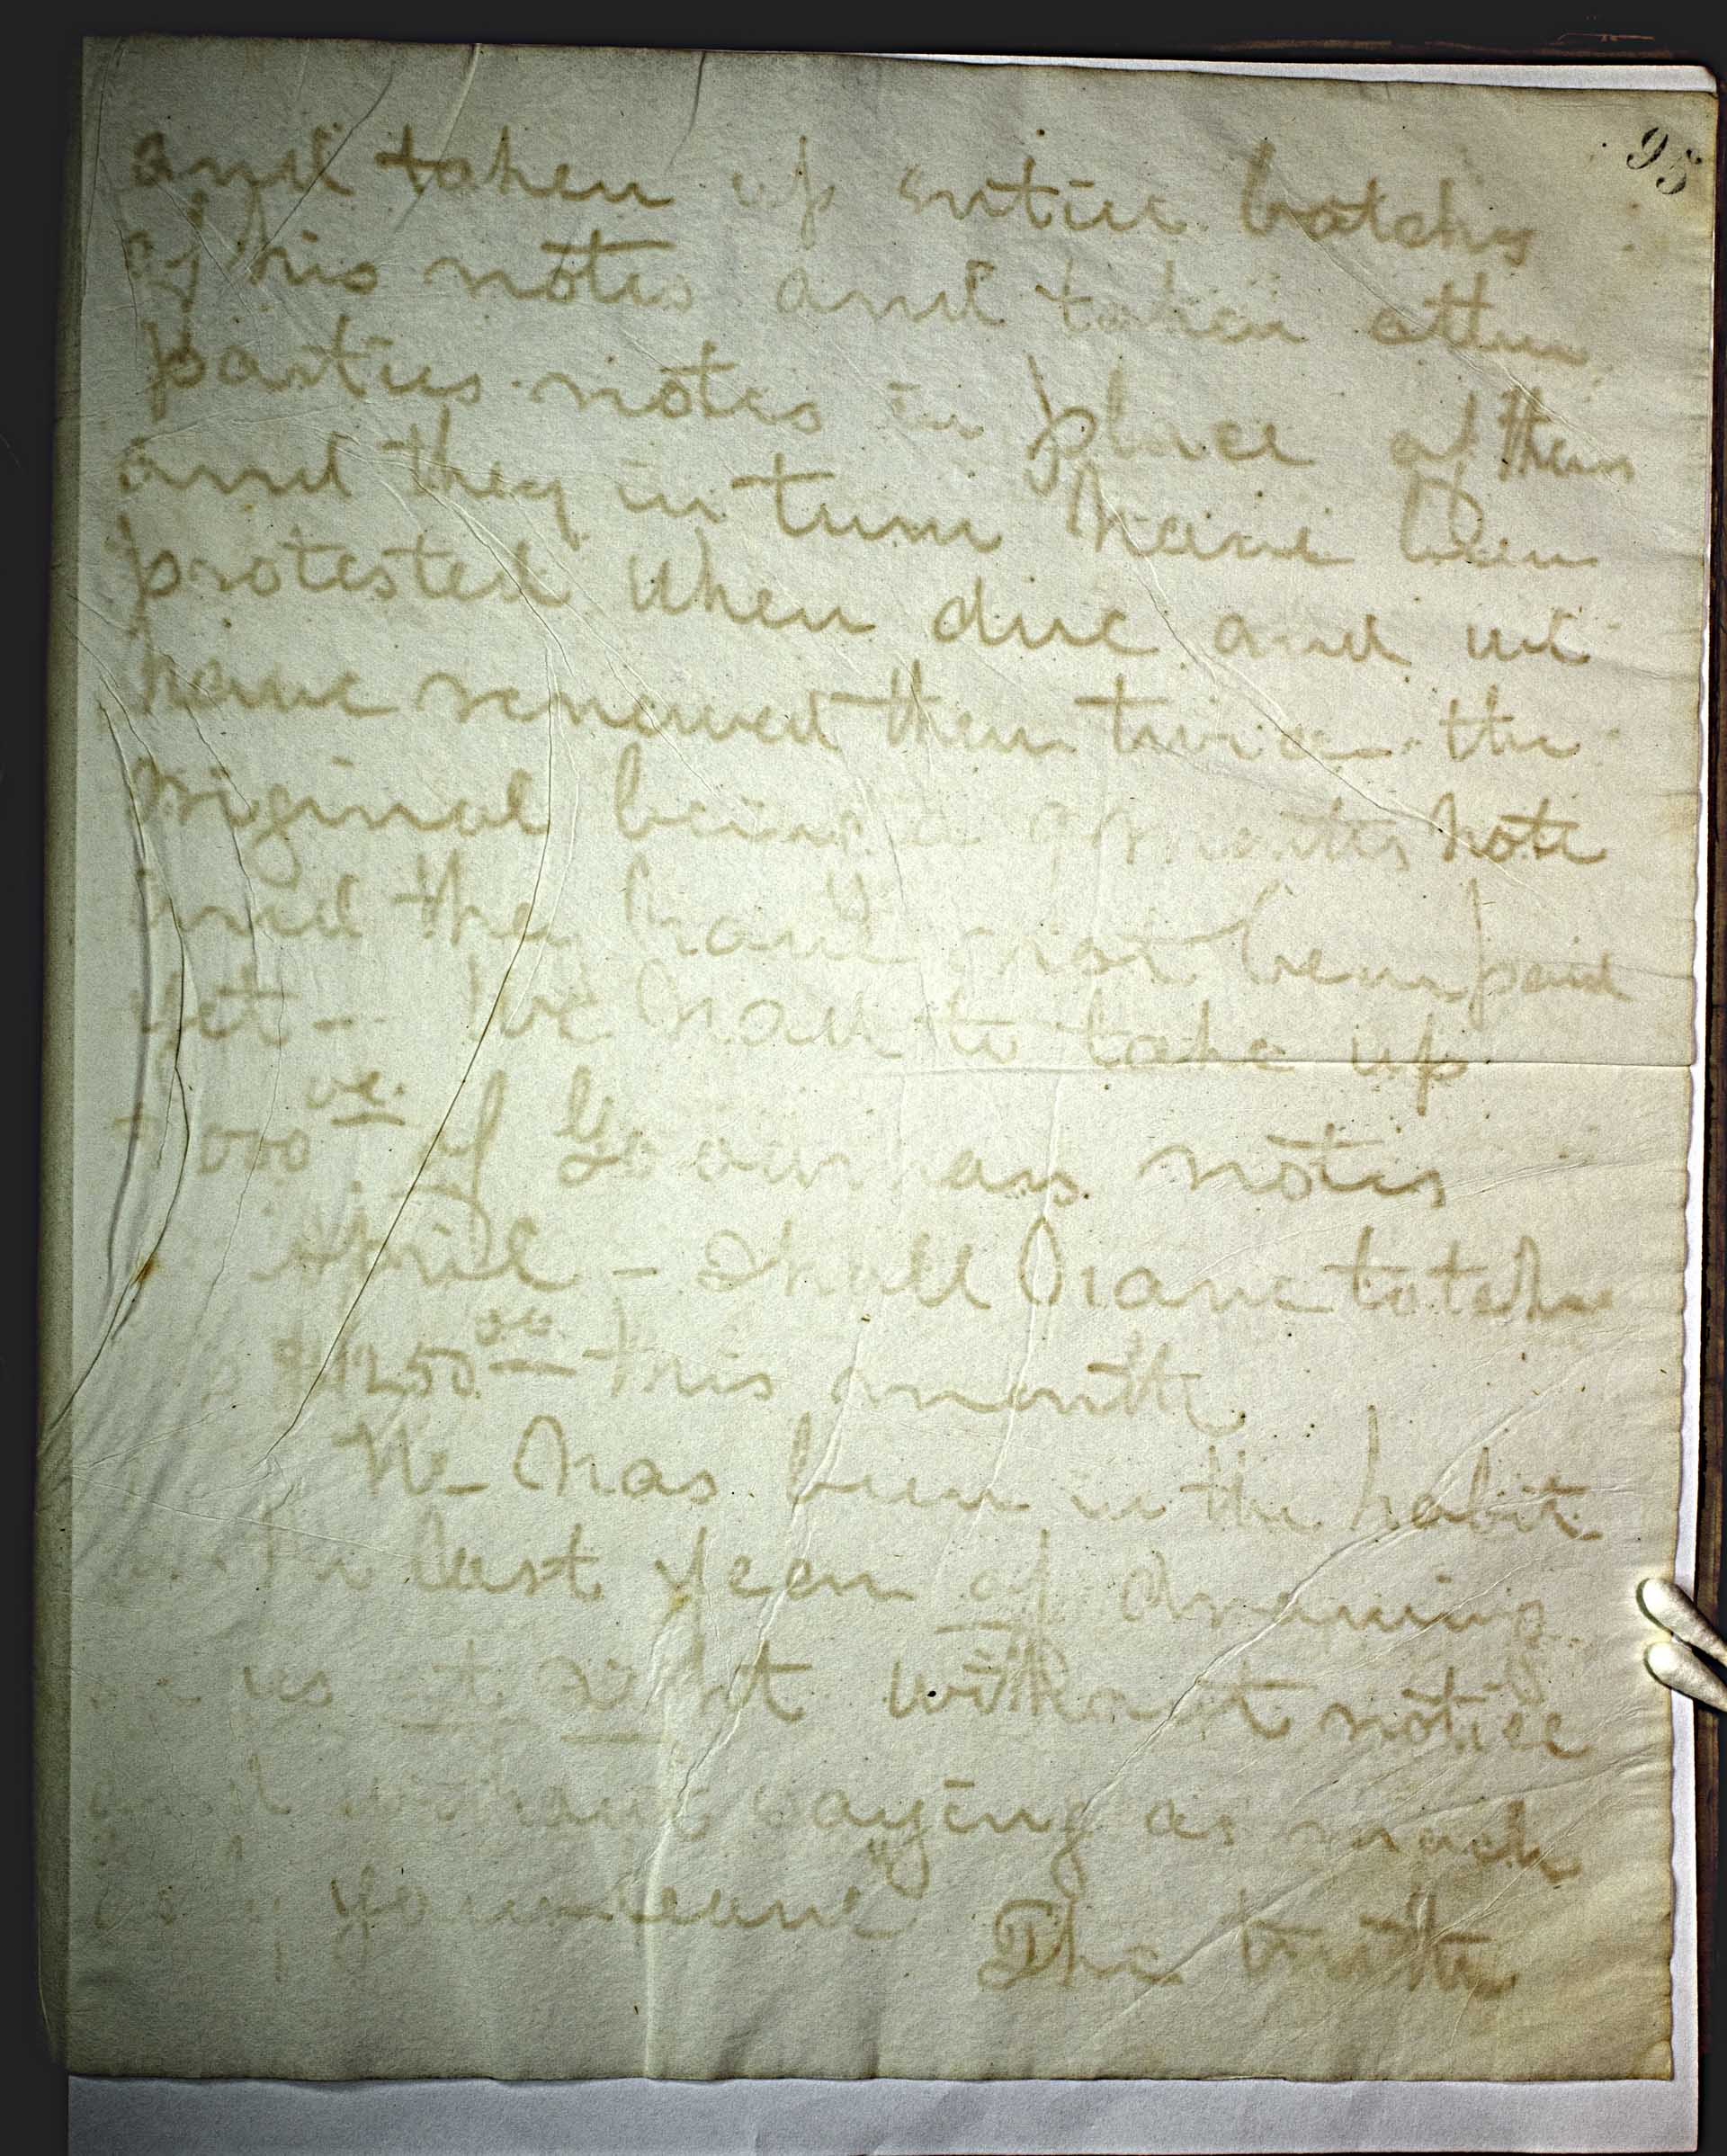 95
and taken up entire batchs
of his notes and taken other
parties notes in place of them
and they in turn have been
protested when due and we
have renewed them twice the
original being a months note
and they have not been paid
yet - We have to take up
000 00 of Gouraas notes
April - Shall have to take
1250 00 this month
He has been in the habit
last year of drawing
us at sight without notice
and without saying as much
as by your leave" The truth